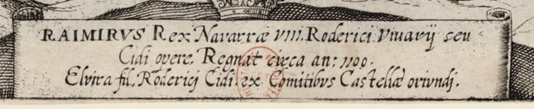 RAIMIRVS Rex Navarræ VIII. Roderici Viuarij seu
Cidi overe. Regnat circa an: 1100.
Elvira fil. Roderici Cidi ex Comitibus Castellæ oriundi.